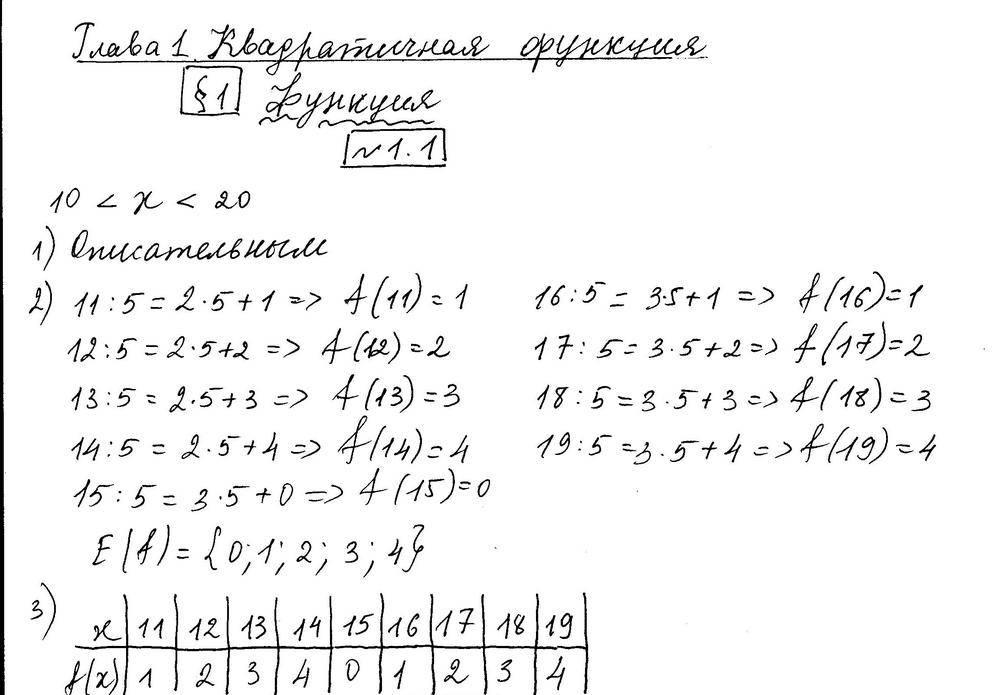 Глава 1. Квадратичная функция
§1 Функция
№1.1
10 < x < 20
1) Описательным
2) 11:5 = 2·5+1 => f(11)=1 16:5 = 3·5+1 => f(16)=1
12:5 = 2·5+2 => f(12)=2 17:5 = 3·5+2 => f(17)=2
13:5 = 2·5+3 => f(13)=3 18:5 = 3·5+3 => f(18)=3
14:5 = 2·5+4 => f(14)=4 19:5 = 3·5+4 => f(19)=4
15:5 = 3·5+0 => f(15)=0
E(f) = {0; 1; 2; 3; 4}
3)
x 11 12 13 14 15 16 17 18 19
f(x) 1 2 3 4 0 1 2 3 4